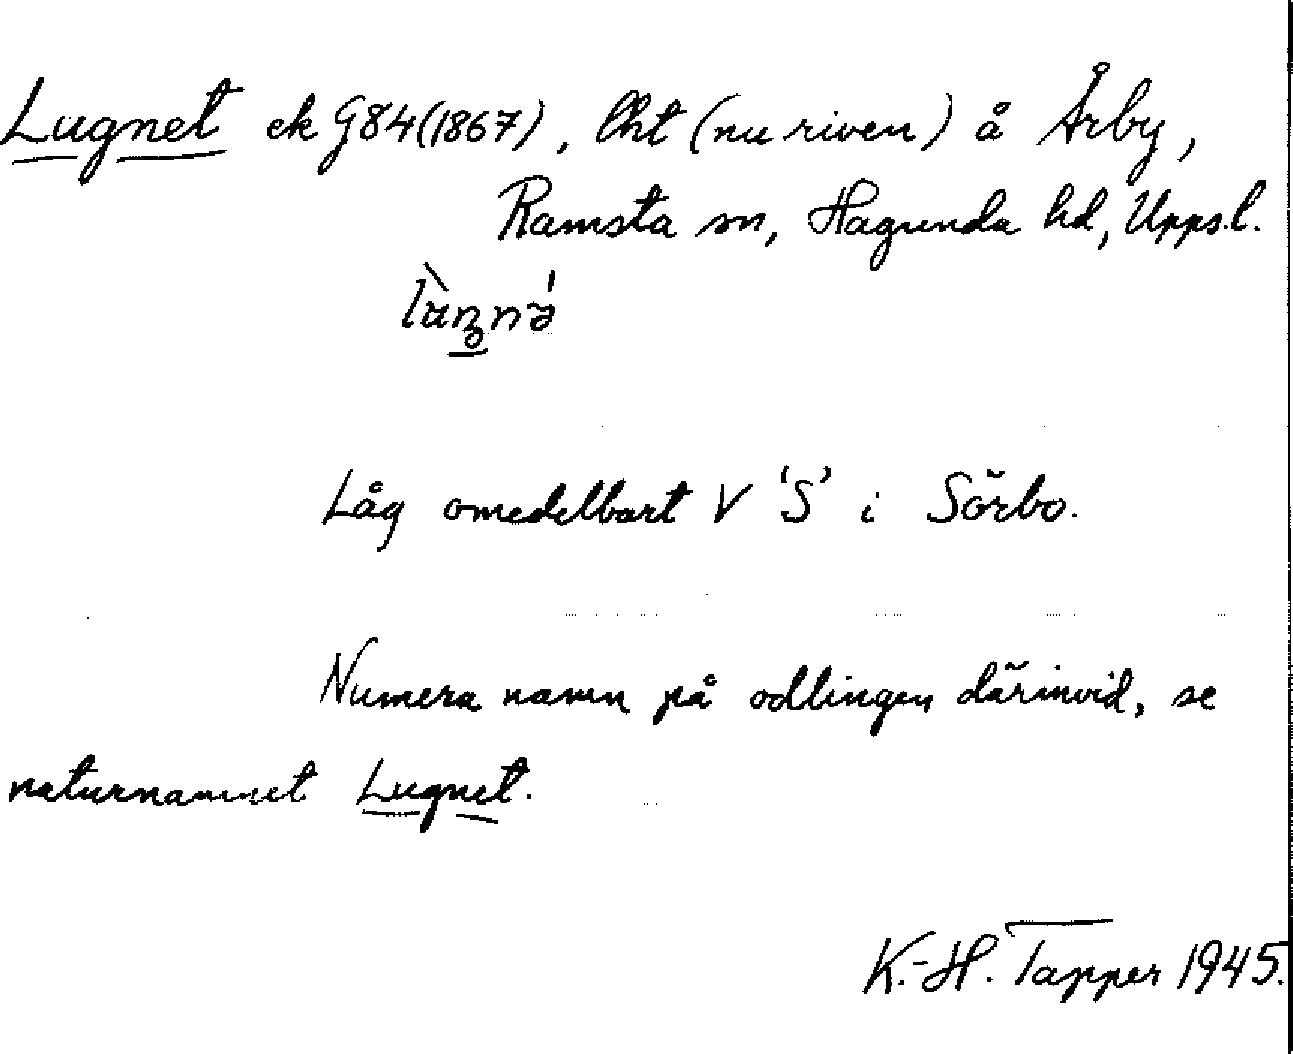 Lugnet ek G84(1867), lht (nu riven) å Årby,
Ramsta sn, Hagunda hd, Uppsl.
Låg omedelbart V 'S' i Sörbo.
Numera namn på odlingen därinvid, se
naturnamnet Lugnet.
K.-H. Tapper 1945.